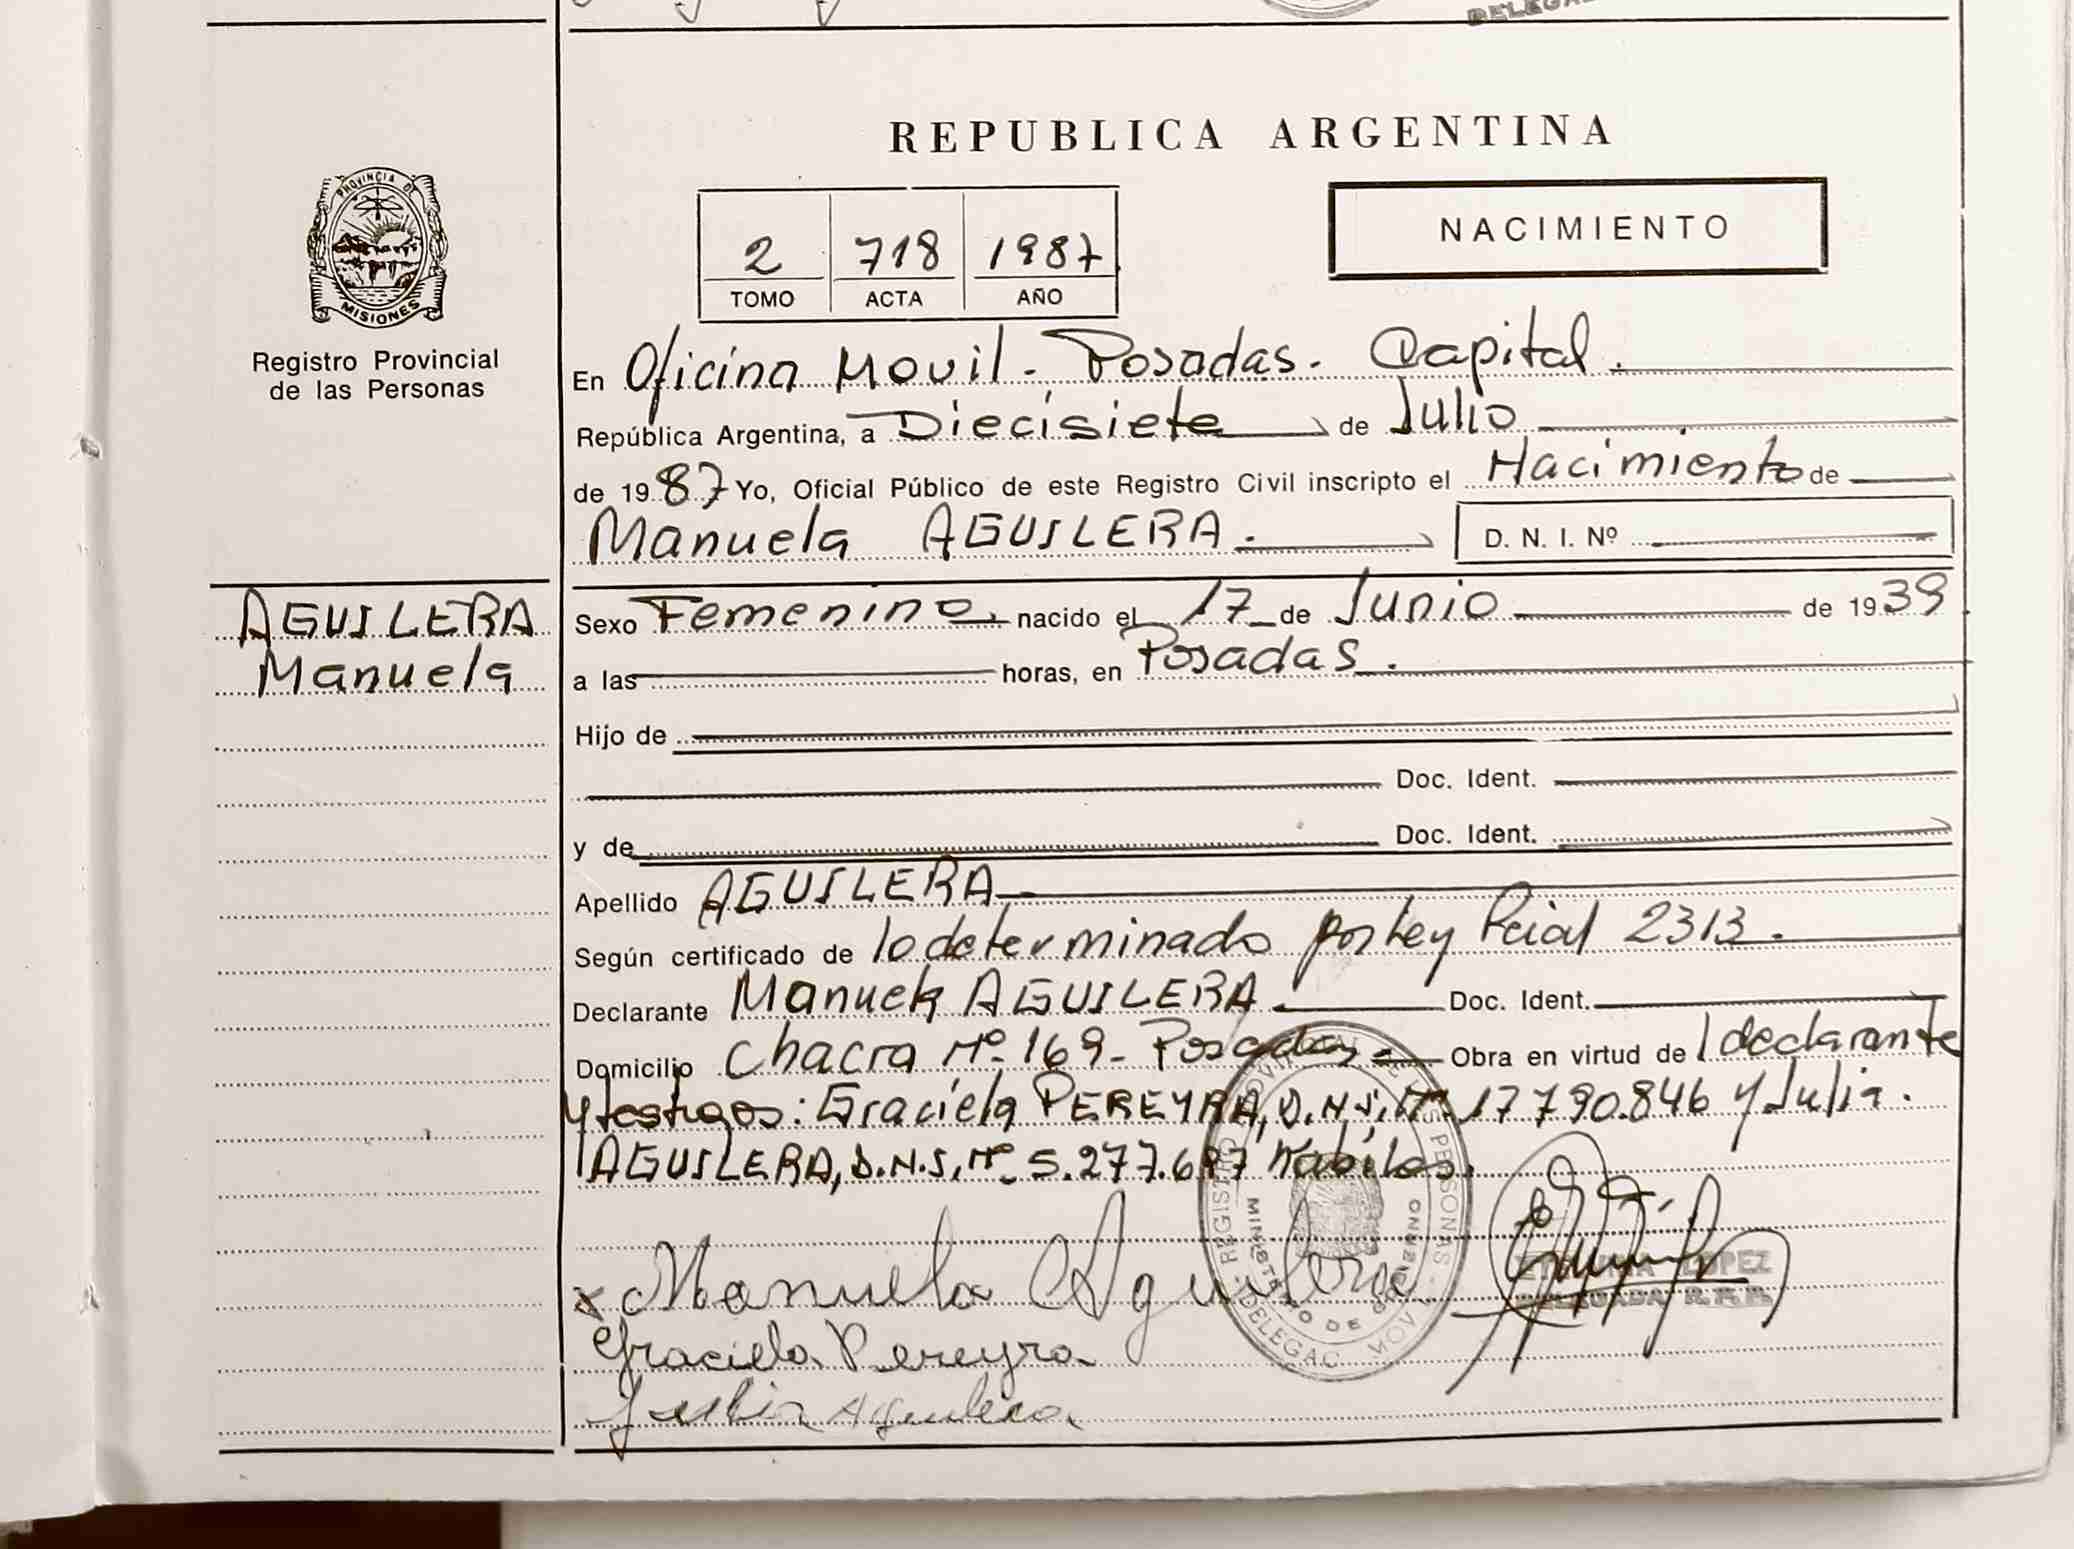 DELEGA
REPUBLICA ARGENTINA
PROVINCIA DE
MISIONES
Registro Provincial
de las Personas
2 718 1987
TOMO ACTA AÑO
NACIMIENTO
En Oficina Movil. Posadas. Capital.
República Argentina, a Diecisiete de Julio
de 1987 Yo, Oficial Público de este Registro Civil inscripto el Nacimiento de
Manuela AGUILERA. D. N. I. Nº
AGUILERA
Manuela
Sexo Femenino nacido el 17 de Junio de 1939
a las horas, en Posadas.
Hijo de
Doc. Ident.
y de Doc. Ident.
Apellido AGUILERA
Según certificado de lo determinado por Ley Pcial 2313.
Declarante Manuela AGUILERA. Doc. Ident.
Domicilio Chacra Nº 169- Posadas- Obra en virtud de l declarante
y testigos: Graciela PEREYRA, D.N.I. Nº 17790.846 y Julia.
AGUILERA, D.N.I. Nº 5.277.697 hábiles.
x Manuela Aguilera
Graciela Pereyra
Julia Aguilera
REGISTRO PROVINCIAL DE LAS PERSONAS
MINISTERIO DE GOBIERNO
DELEGAC. MOVIL
LOPEZ
DELEGADA R.P.P.